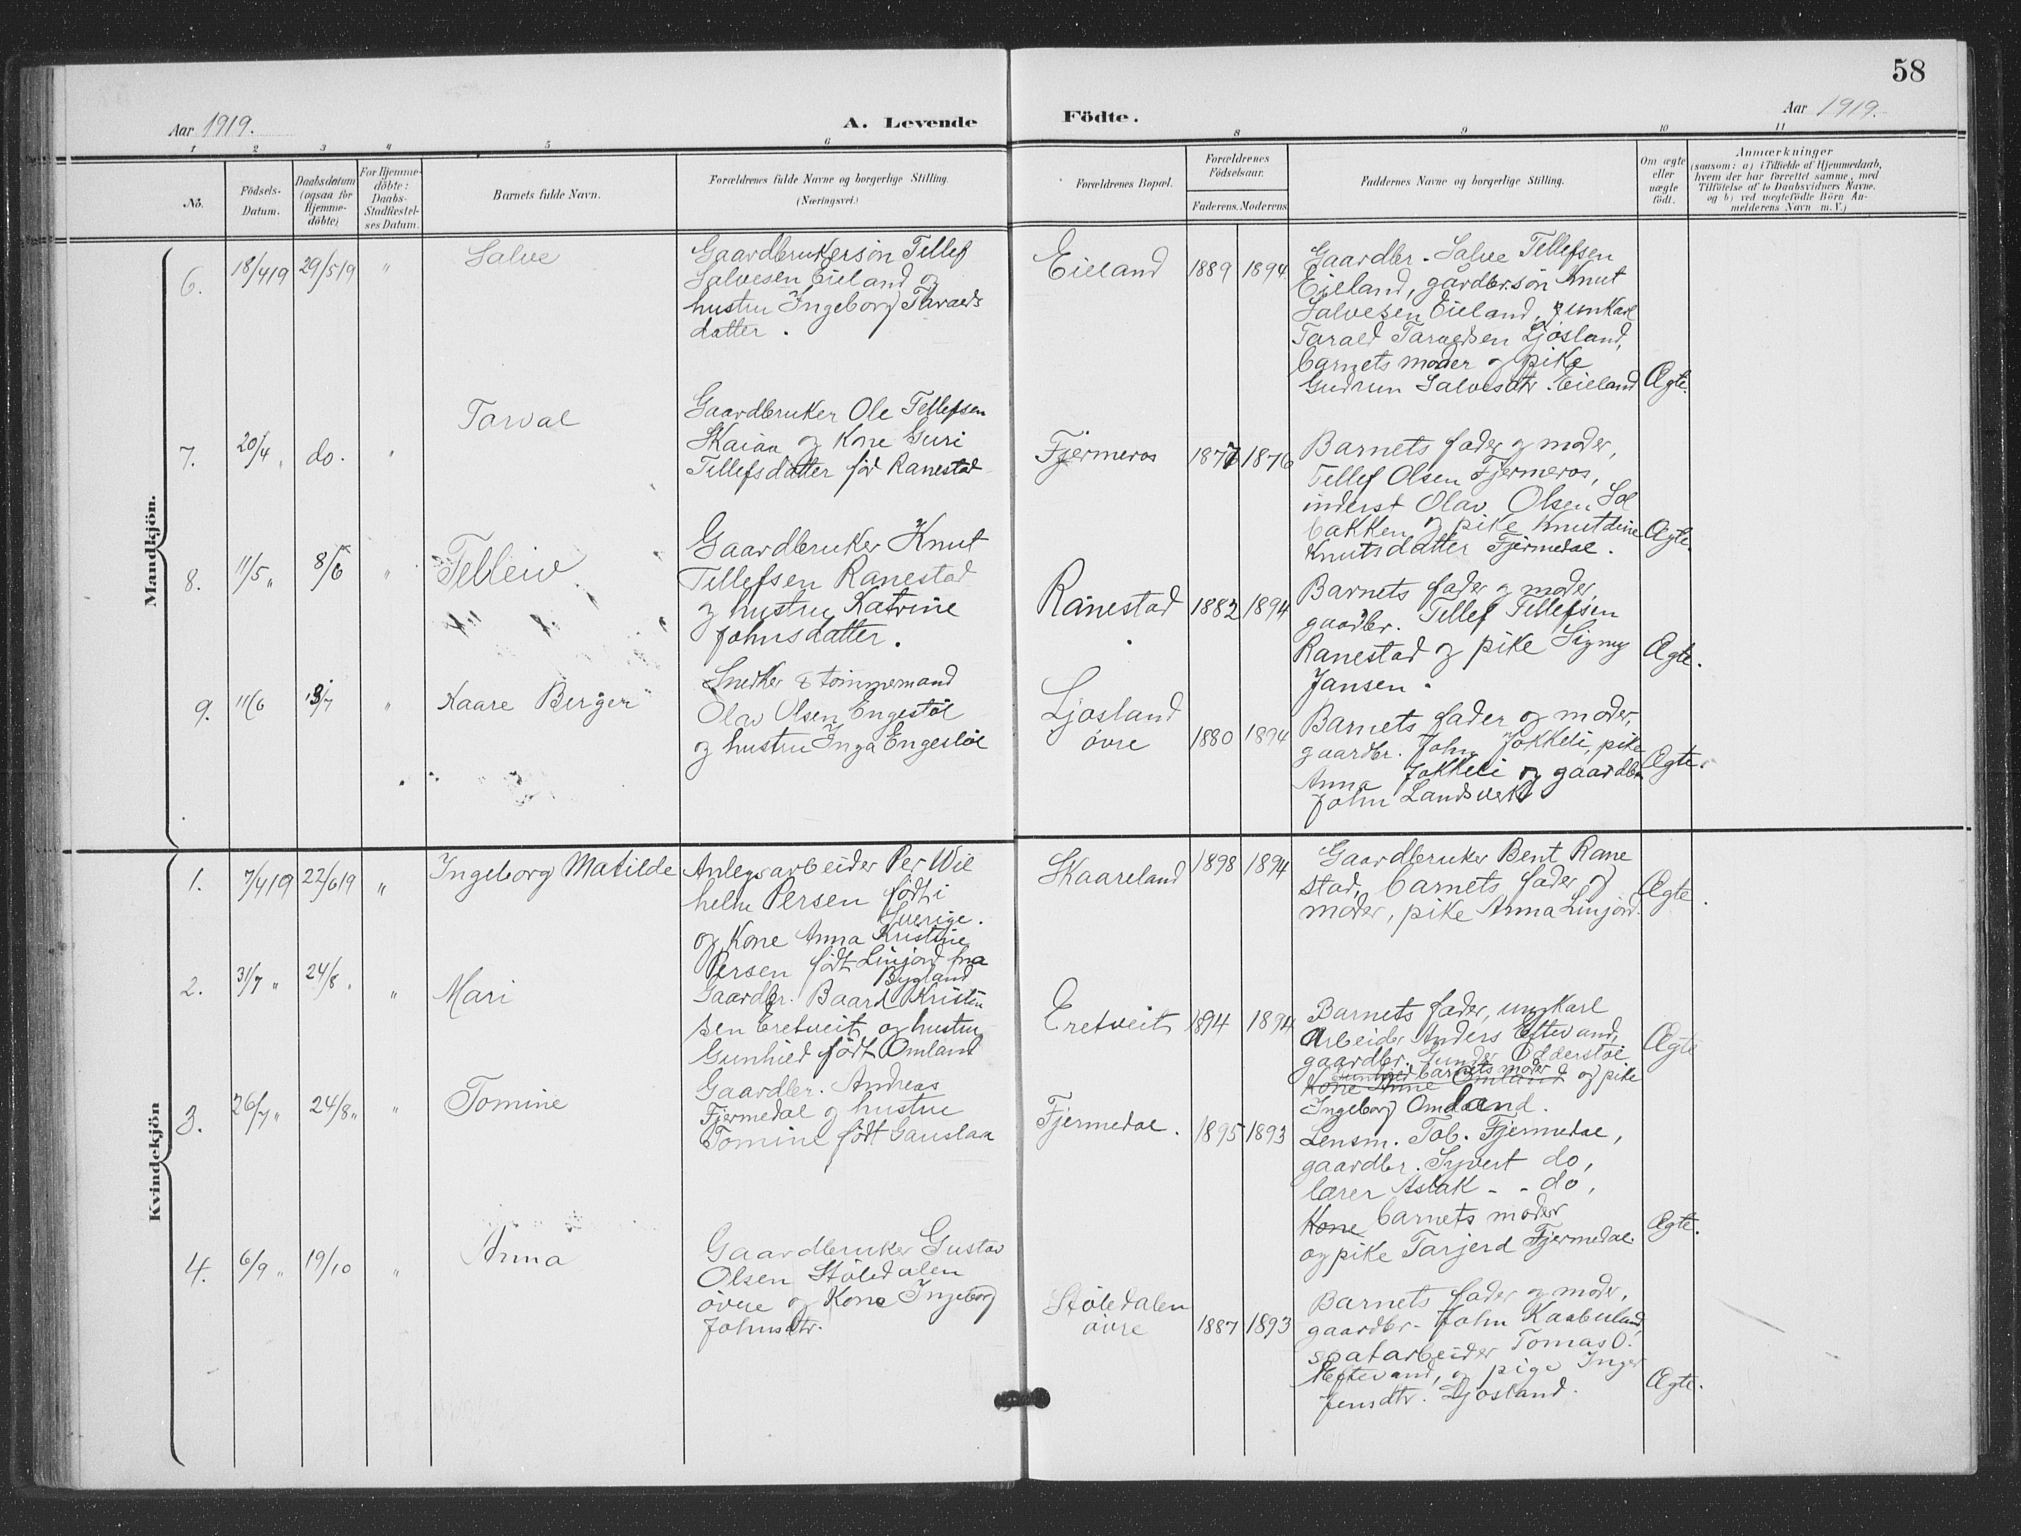 58
Aar 1919.
A. Levende
Födte.
Aar 1919.
1 2 3 4 5 6 8 9 10 11
No.
Födsels-
Datum.
Daabsdatum
(ogsaa for
Hjemme-
döbte)
For Hjemme-
döbte:
Daabs-
Stadfæstel-
ses Datum.
Barnets fulde Navn.
Forældrenes fulde Navne og borgerlige Stilling.
(Næringsvei.)
Forældrenes Bopæl.
Forældrenes
Födselsaar.
Faderens. Moderens
Faddernes Navne og borgerlige Stilling.
Om ægte
eller
uægte
födt.
Anmærkninger
(saasom: a) i Tilfælde af Hjemmedaab,
hvem der har forrettet samme, med
Tilföielse af to Daabsvidners Navne.
og b) ved uægtefödte Börn An-
melderens Navn m. V.)
Mandkjön.
6. 18/4 19 29/5 19 " Salve
Gaardbrukersön Tellef
Salvesen Eieland og
hustru Ingeborg Taralds
datter.
Eieland 1889 1894
Gaardbr. Salve Tellefsen
Eieland, gårdbr.sön Knut
Salvesen Eieland, unkarl
Tarald Taraldsen Ljosland,
barnets moder og pike
Gudrun Salvesdtr. Eieland Ægte.
7. 20/4 " do. " Torval
Gaardbruker Ole Tellefsen
Skaiaa og Kone Guri
Tellefsdatter föd Ranestad
Fjermeros 1877 1876
Barnets fader og moder,
Tellef Olsen Fjermeros,
inderst Olav Olsen Sol
bakken og pike Knutdine
Knutsdatter Fjermedal. Ægte.
8. 11/5 " 8/6 " Telleiv
Gaardbruker Knut
Tellefsen Ranestad
og hustru Katrine
Johnsdatter.
Ranestad 1882 1894
Barnets fader og moder,
gaardbr. Tellef Tellefsen
Ranestad og pike Signy
Jansen. Ægte.
9. 11/6 13/7 " Kaare Berger
Snedker & tömmermand
Olav Olsen Engestöl
og hustru Inga Engestöl
Ljosland
övre 1880 1894
Barnets fader og moder,
gaardbr. John Jokkeli, pike
Anna Jokkeli og gaardbr.
John Landsverk Ægte.
Kvindekjön
1. 7/4 19 22/6 19 " Ingeborg Matilde
Anlegsarbeider Per Wil
helm Persen födt i
Sverige.
og Kone Anna Kristine
Persen födt Linjord fra
Bygland
Skaareland 1898 1894
Gaardbruker Bent Rane
stad, barnets fader og
moder, pike Anna Linjord. Ægte.
2. 31/7 " 24/8 " " Mari
Gaardbr. Baard Kristen
sen Eretveit og hustru
Gunhild födt Omland
Eretveit 1894 1894
Barnets fader, unkarl
Arbeider Anders Eftevand,
gaardbr. Gunder Odderstöl
Gunhild barnets moder
Kone Anne Omland og pike
Ingeborg Omland. Ægte
3. 26/7 " 24/8 " " Tomine
Gaardbr. Andreas
Fjermedal og hustru
Tomine födt Gauslaa
Fjermedal. 1895 1893
Lensm. Tob. Fjermedal,
gaardbr. Syvert do,
lærer Aslak - - do,
Kone barnets moder
og pike Tarjerd Fjermedal Ægte.
4. 6/9 " 19/10 " Anna
Gaardbruker Gustav
Olsen Stöledalen
övre og Kone Ingeborg
Johnsdtr.
Stöledalen
övre 1887 1893
Barnets fader og moder,
gaardbr. John Kaabuland,
spatarbeider Tomas O.
Eftevand, og pige Inger
Jensdtr. Ljosland. Ægte.